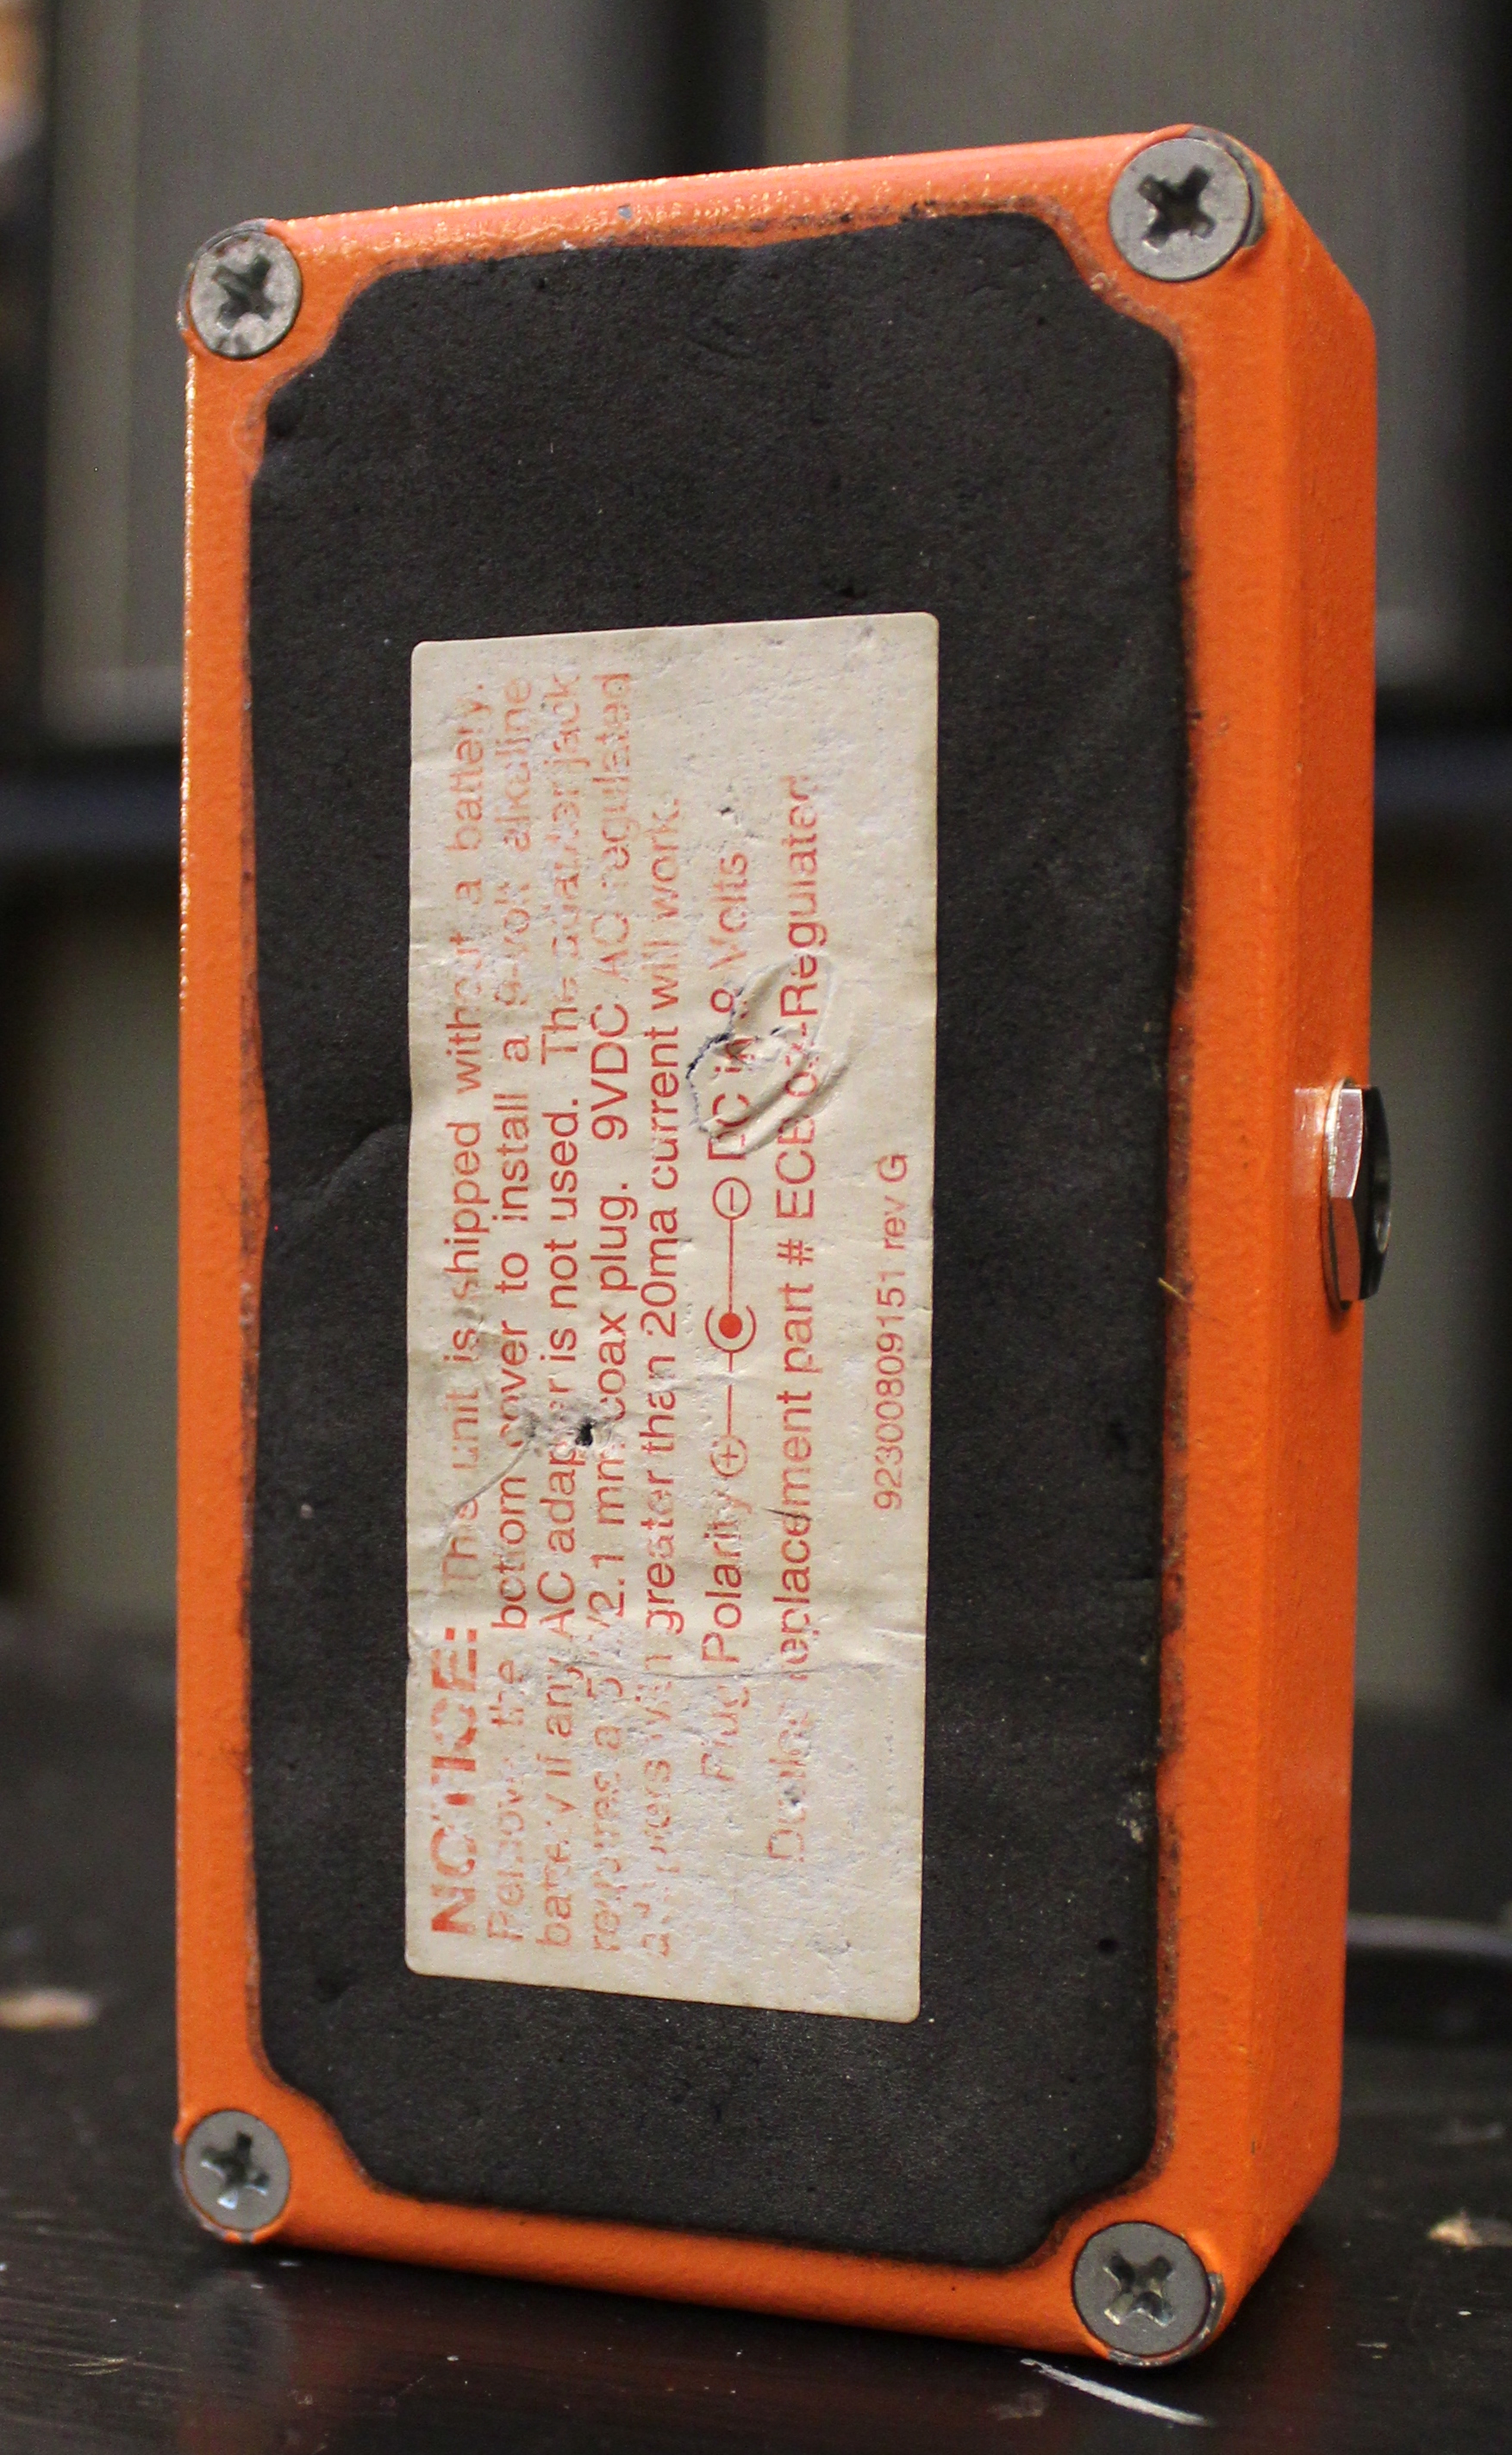 NOTICE: This unit is shipped without a battery.
Remove the bottom cover to install a 9-volt alkaline
battery if any AC adapter is not used. The adapter jack
requires a 5 /2.1 mm coax plug. 9VDC AC regulated
adapters with greater than 20ma current will work.
Plug Polarity + - DC in 9 Volts
replacement part # ECB Regulated
923008091 51 rev G